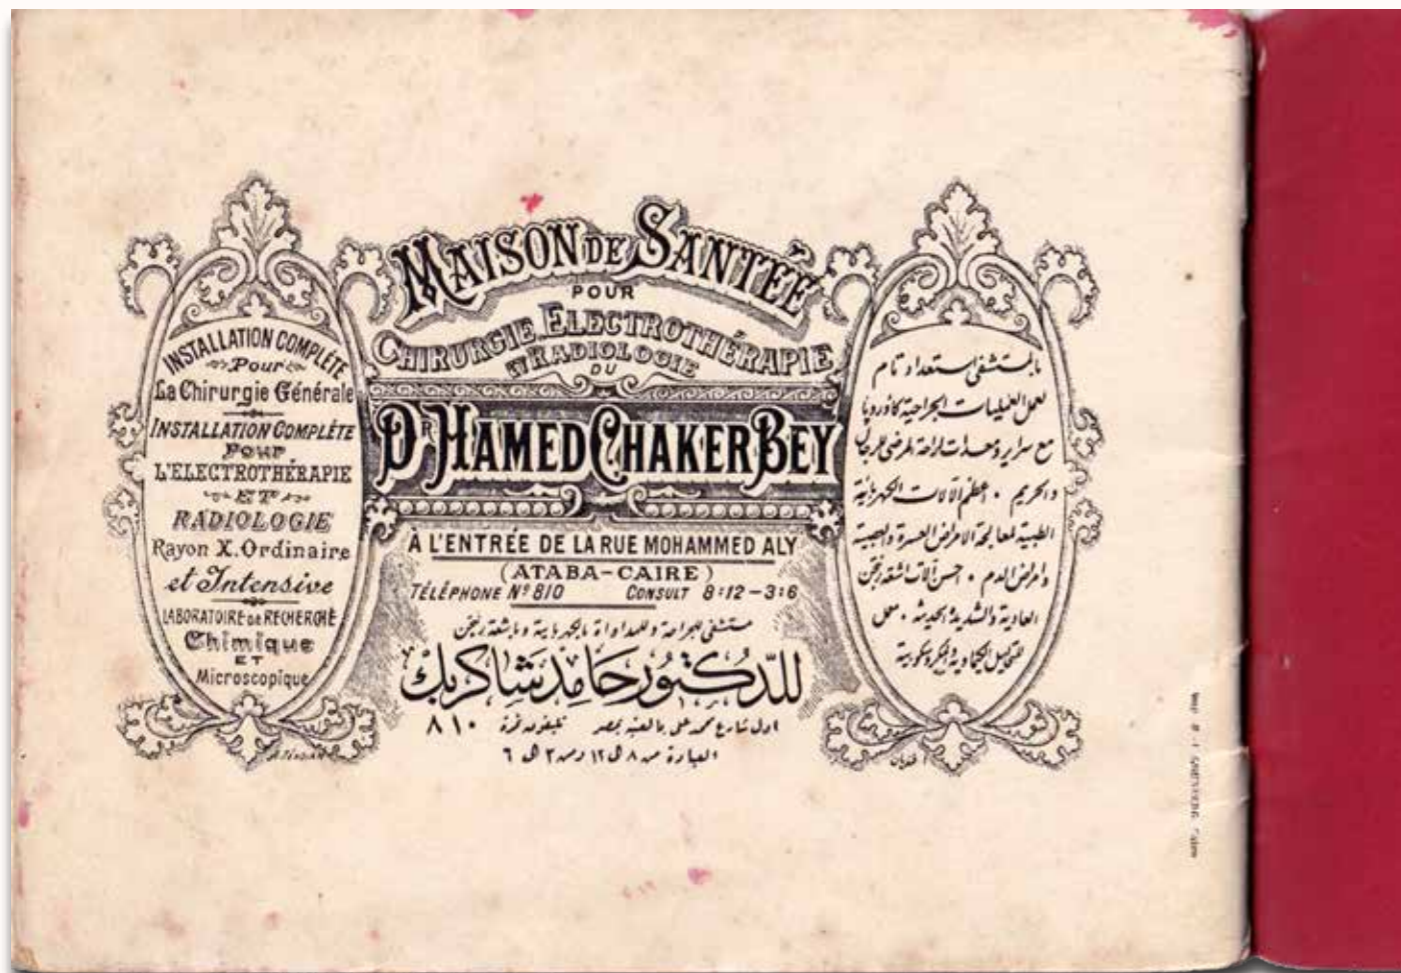 INSTALLATION COMPLÉTE
Pour
La Chirurgie Générale
INSTALLATION COMPLÉTE
POUR
L'ELECTROTHÉRAPIE
ET
RADIOLOGIE
Rayon X. Ordinaire
et Intensive
LABORATOIRE DE RECHERCHE
Chimique
ET
Microscopique
MAISON DE SANTÉE
POUR
CHIRURGIE ELECTROTHÉRAPIE
ET RADIOLOGIE
DU
DR HAMED CHAKER BEY
À L'ENTRÉE DE LA RUE MOHAMMED ALY
(ATABA-CAIRE)
TÉLÉPHONE Nº 810 CONSULT 8:12-3:6
مستشفى للجراحة وللمداواة بالكهربائية وبأشعة رنتجن
للدكتور حامد شاكر بك
اول شارع محمد على بالعتبه بمصر تليفون نمرة ٨١٠
العيادة من ٨ الى ١٢ ومن ٣ الى ٦
بالمستشفى استعداد تام
لعمل العمليات الجراحية كأوروبا
مع سراير ومعدات لراحة المرضى للرجال
والحريم . اعظم الآلات الكهربائية
الطبية لمعالجة الامراض العسرة والعصبية
وامراض الدم . احسن آلات اشعة رنتجن
العادية والشديدة الحديثة . معمل
للتحاليل الكيماوية والميكروسكوبية